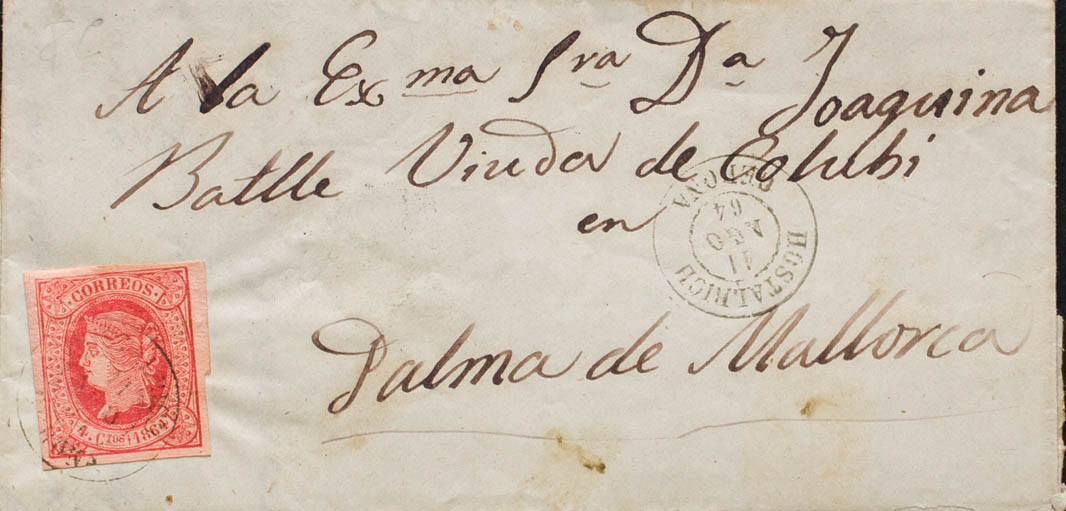 A la Exma Sra Da Joaquina
Batlle Viuda de Colubi
en
Palma de Mallorca
HOSTALRICH
11
AGO
64
GERONA
CORREOS
4. Ctos 1864